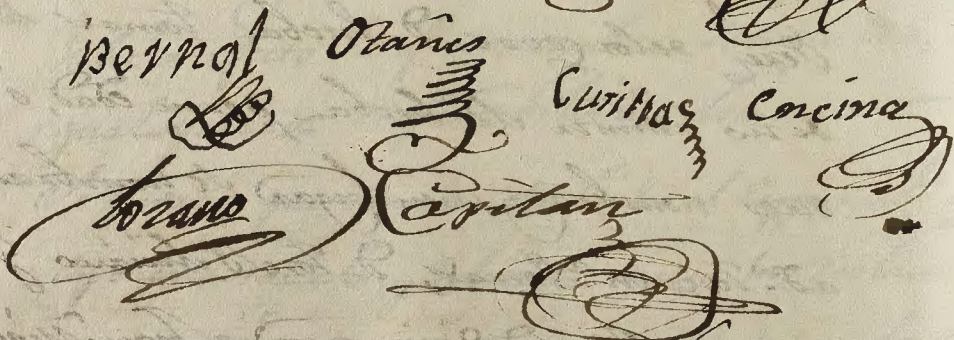 Bernal Otañes Cutillas Encina
Lozano Capitan